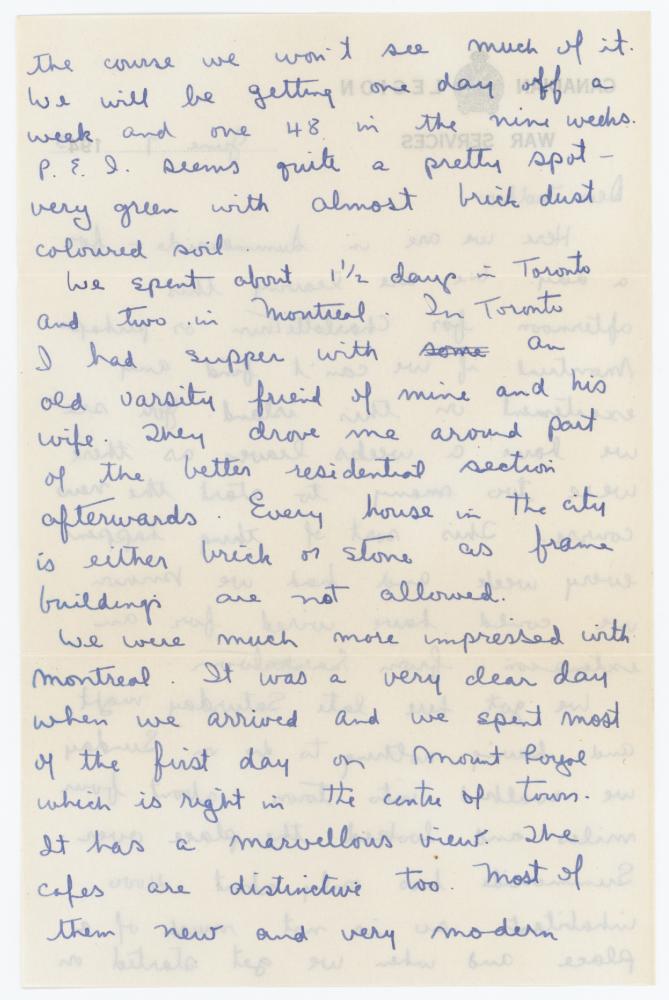 the course we won't see much of it.
We will be getting one day off a
week and one 48 in the nine weeks.
P. E. I. seems quite a pretty spot –
very green with almost brick dust
coloured soil.
We spent about 1 1/2 days in Toronto
and two in Montreal. In Toronto
I had supper with some an
old varsity friend of mine and his
wife. They drove me around part
of the better residential section
afterwards. Every house in the city
is either brick or stone as frame
buildings are not allowed.
We were much more impressed with
Montreal. It was a very clear day
when we arrived and we spent most
of the first day on Mount Royal
which is right in the centre of town.
It has a marvellous view. The
cafes are distinctive too. Most of
them new and very modern